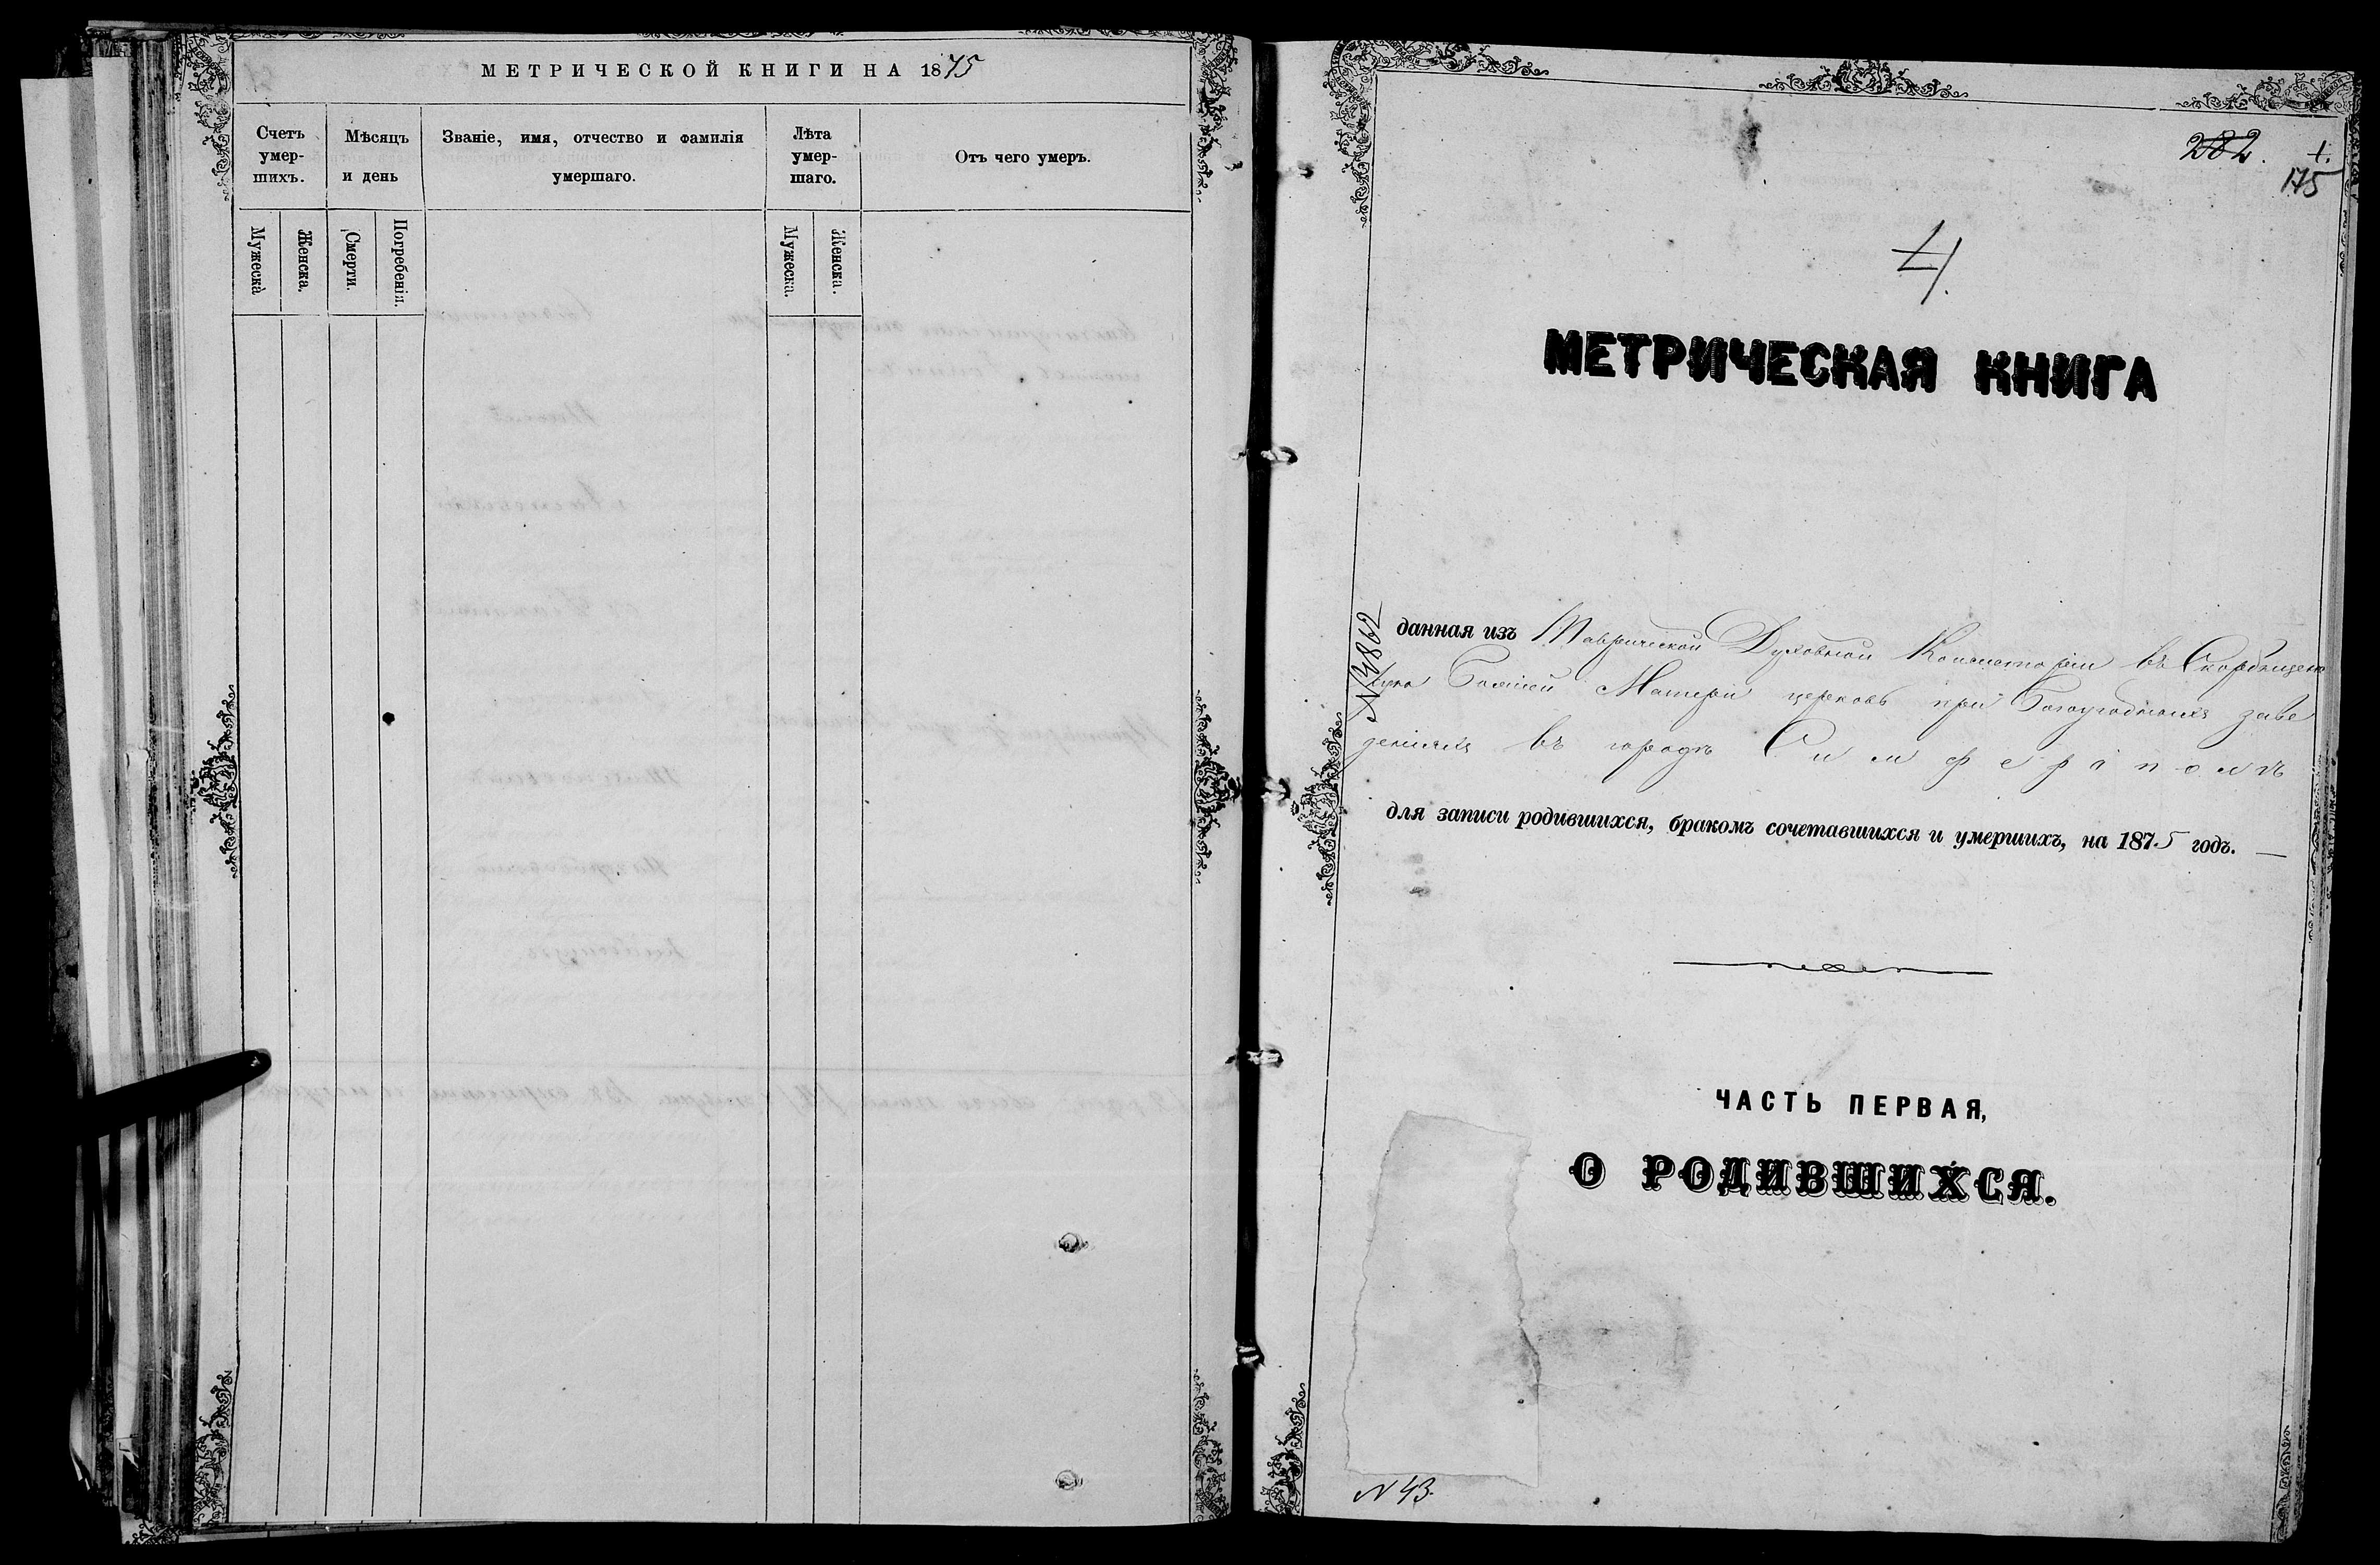 МЕТРИЧЕСКОЙ КНИГИ НА 1875
Счетъ умер-шихъ.
Мѣсяцъ и день
Званіе, имя, отчество и фамилія умершаго.
Лѣта умер-шаго.
Отъ чего умеръ.
Мужеска
Женска.
Смерти.
Погребенія.
Мужеска.
Женска.
282.
1.
175
4.
МЕТРИЧЕСКАЯ КНИГА
№ 4862
данная изъ Таврической Духовной Консисторіи въ Скорбящен
Божіей Матери церковь при Богоугодныхъ заве
деніяхъ въ городѣ Симферополѣ
для записи родившихся, бракомъ сочетавшихся и умершихъ, на 1875 годъ. —
ЧАСТЬ ПЕРВАЯ,
О РОДИВШИХСЯ.
N 43.